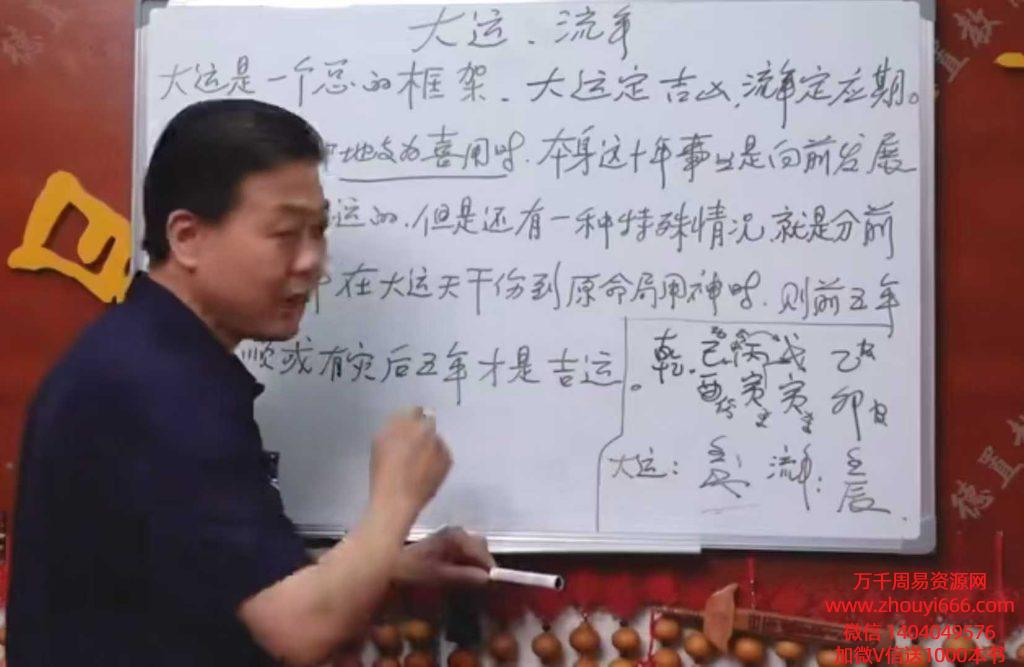 大运、流年
大运是一个总的框架。大运定吉凶,流年定应期。
地支为喜用时,本身这十年事业是向前发展
运的,但是还有一种特殊情况,就是分前
在大运天干伤到原命局用神时,则前五年
顺或有灾后五年才是吉运。
乾: 己 丙 戊 乙
酉 寅 寅 卯
大运: 流年: 壬
辰
德直
直教
德直
万千周易资源网
www.zhouyi666.com
微信 1404049576
加微V信送1000本书